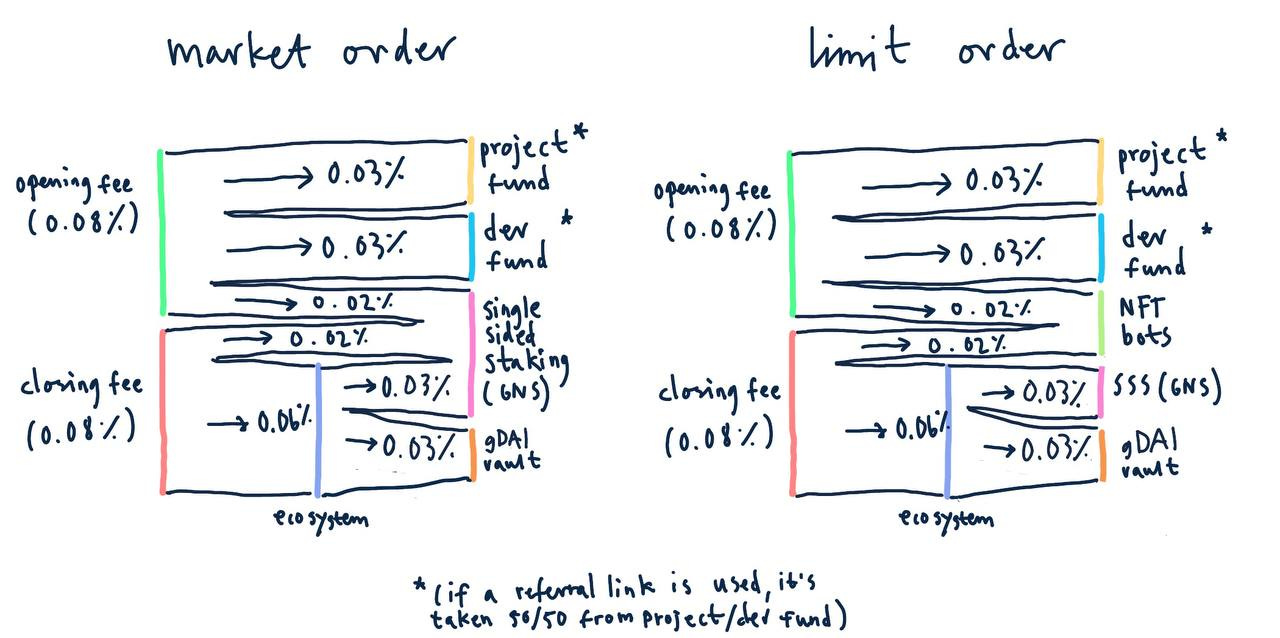 market order
opening fee
(0.08%)
closing fee
(0.08%)
→ 0.03%
→ 0.03%
→ 0.02%
→ 0.02%
→ 0.06%
→ 0.03%
→ 0.03%
project*
fund
dev *
fund
single
sided
staking
(GNS)
gDAI
vault
ecosystem
limit order
opening fee
(0.08%)
closing fee
(0.08%)
→ 0.03%
→ 0.03%
→ 0.02%
→ 0.02%
→ 0.06%
→ 0.03%
→ 0.03%
project*
fund
dev *
fund
NFT
bots
SSS (GNS)
gDAI
vault
ecosystem
*(if a referral link is used, it's
taken 50/50 from project/dev fund)